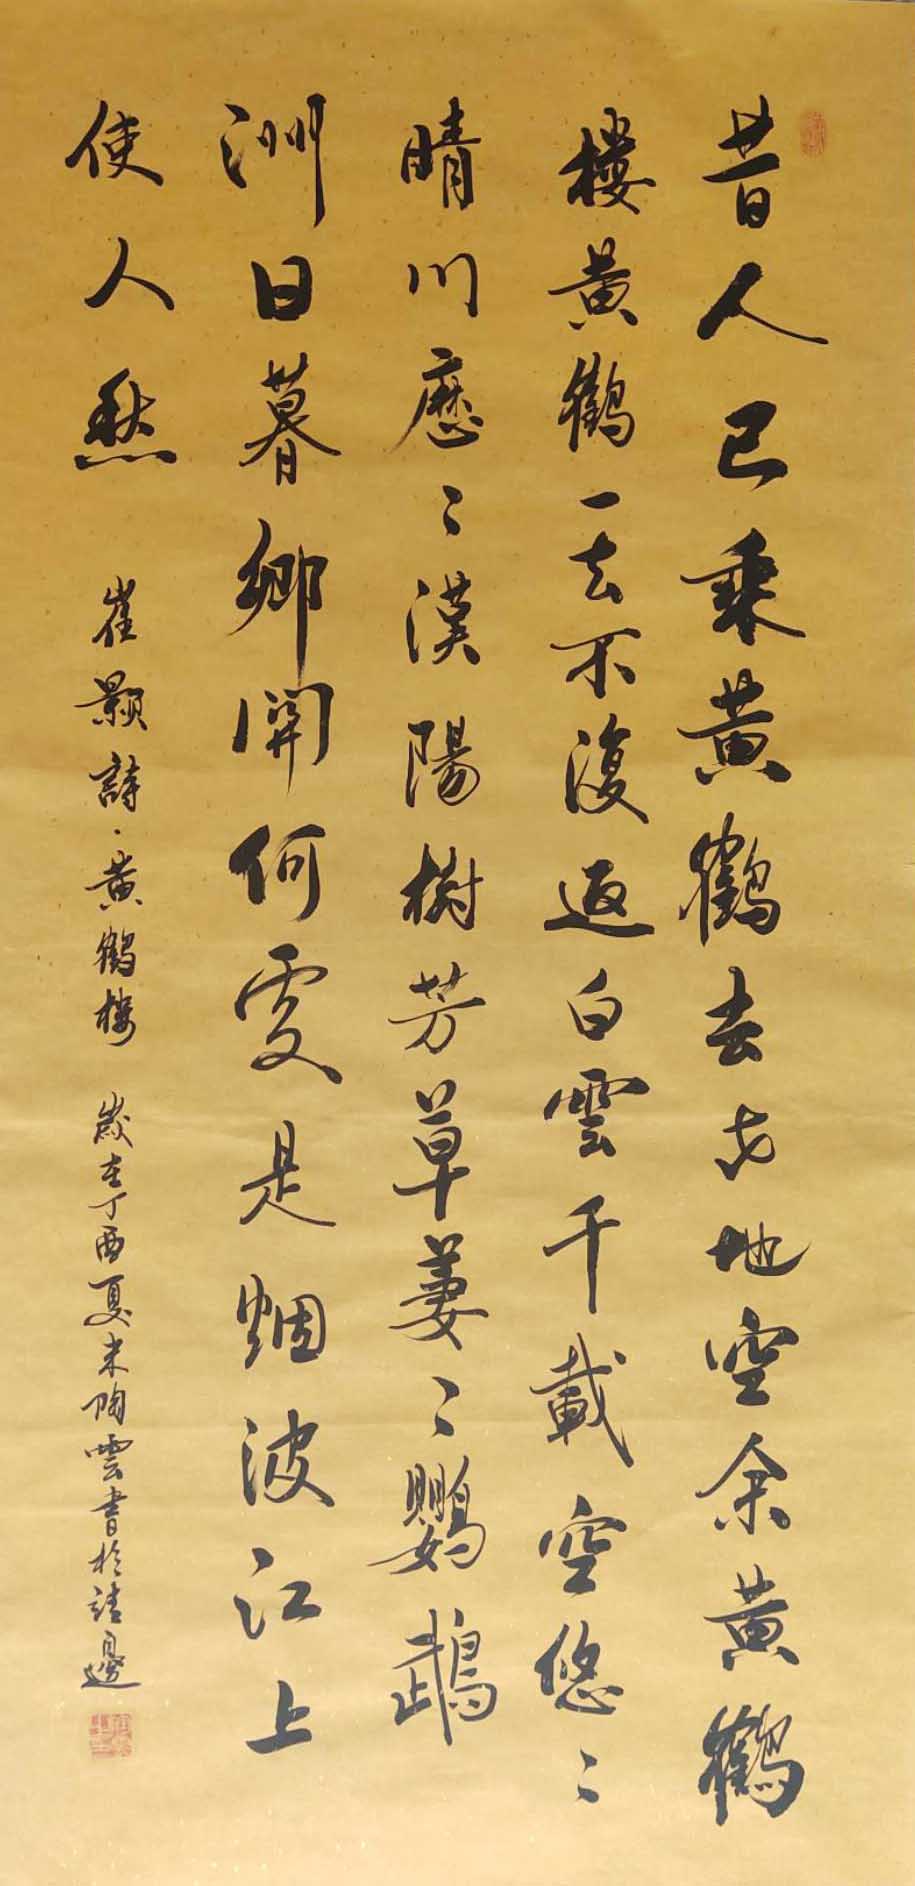 昔人已乘黄鶴去此地空余黄鶴
樓黄鶴一去不復返白雲千載空悠〻
晴川歷〻漢陽樹芳草萋〻鸚鵡
洲日暮鄉関何處是烟波江上
使人愁 崔顥詩·黄鶴樓 歲在丁酉夏末陶雲書於靖邊